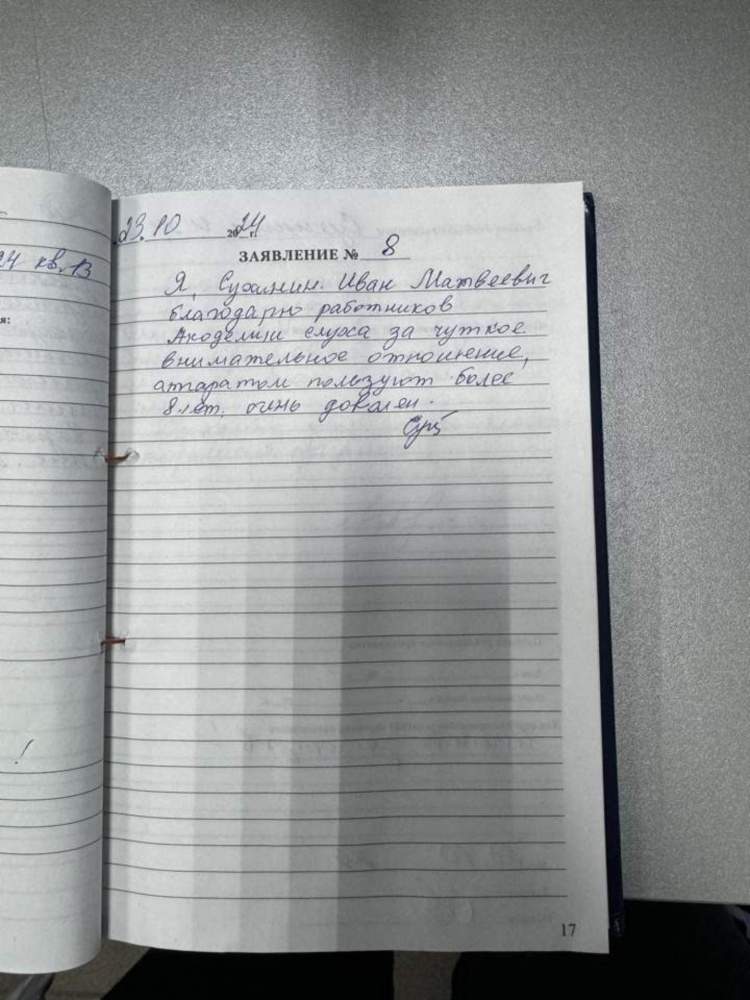 24 кв. 13
я:
!
23.10 2024 г.
ЗАЯВЛЕНИЕ № 8
Я, Суханин Иван Матвеевич
благодарю работников
Академии слуха за чуткое
внимательное отношение,
аппаратом пользуют более
8 лет. очень доволен.
17